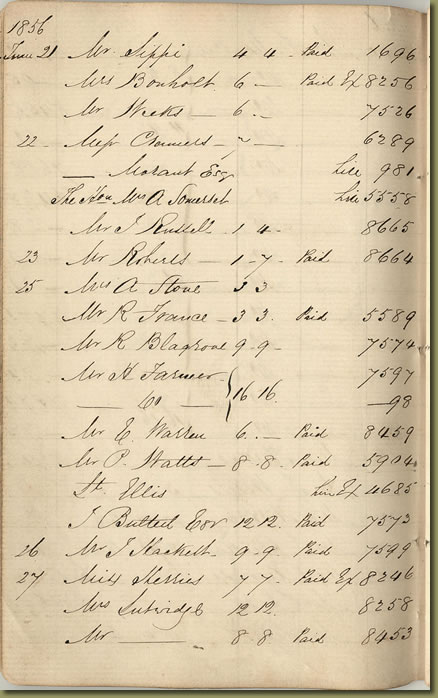 1856
June 21 Mr Sippi 4 4 - Paid 1696
Mrs Bonholt 6 — Paid Ex 8256
Mr Weeks — 6 . - 7526
22 Messrs — 7 — 6289
— Morant Esq Lire 981
The Honble Mrs A Somerset Lire 5558
Mr J Russell - 1 4 - 8665
23 Mr Roberts — 1 - 7 - Paid 8664
25 Mrs A Stone 3 3
Mr R France - 3 3 . Paid 5589
Mr R Blagrove 9 - 9 - 7574
Mr H Farmer - 7597
— Do — { 16 16. — 98
Mr E. Warren 6 . — Paid 8459
Mr P. Watts — 8 - 8 . Paid 5904
St. Ellis Lire Ex 4685
J Butted Esq 12 12. Paid 7573
26 Mr J Hackett - 9 - 9 . Paid 7599
27 Miss Sherries 7 7 - Paid Ex 8246
Mrs Lutwidge 12 12. 8258
Mr — 8 8 Paid 8453